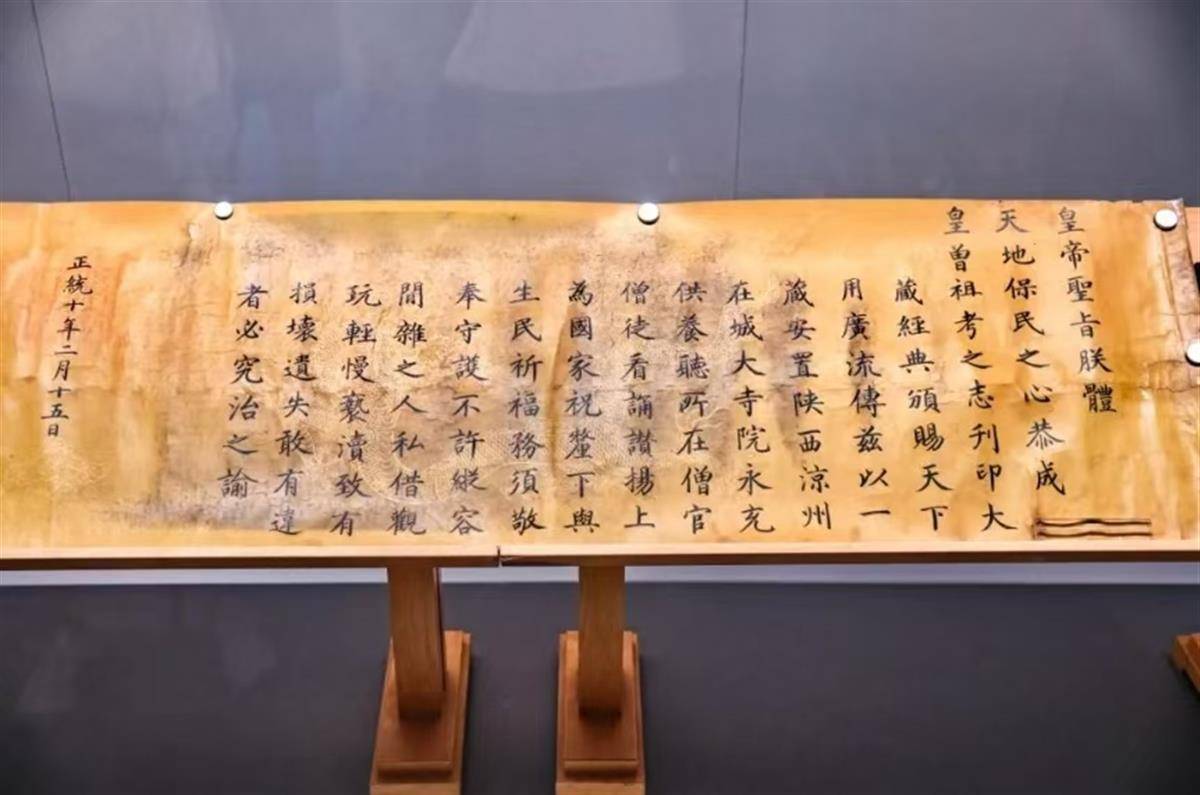 皇帝聖旨朕體
天地保民之心恭成
皇曾祖考之志刊印大
藏經典頒賜天下
用廣流傳兹以一
藏安置陕西涼州
在城大寺院永充
供養聽所在僧官
僧徒看誦讃揚上
為國家祝釐下與
生民祈福務須敬
奉守護不許縱容
閒雜之人私借觀
玩輕慢褻瀆致有
損壞遺失敢有違
者必究治之諭
正統十年二月十五日